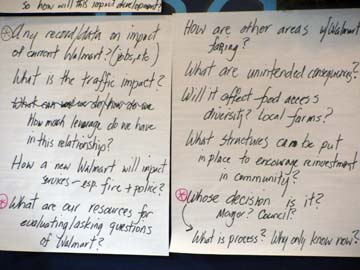 so how will this impact development?
Any record/data on impact
of current Walmart? (jobs, etc)
What is the traffic impact?
How much leverage do we have
in this relationship?
How a new Walmart will impact
services - esp. fire + police?
What are our resources for
evaluating/asking questions
of Walmart?
How are other areas w/Walmart
faring?
What are unintended consequences?
Will it affect food access
diversity? Local farms?
What structures can be put
in place to encourage reinvestment
in community?
Whose decision is it?
Mayor? Council?
What is process? Why only know now?